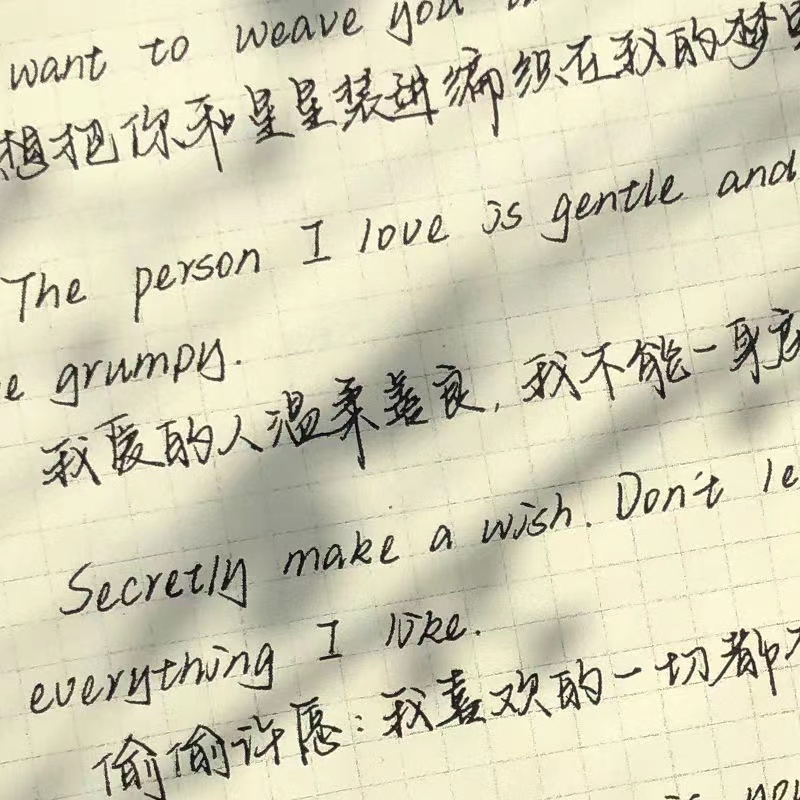 want to weave you
想把你和星星装进编织在我的梦里
The person I love is gentle and
e grumpy.
我爱的人温柔善良，我不能一身
Secretly make a wish. Don't le
everything I like.
偷偷许愿：我喜欢的一切都不
is you